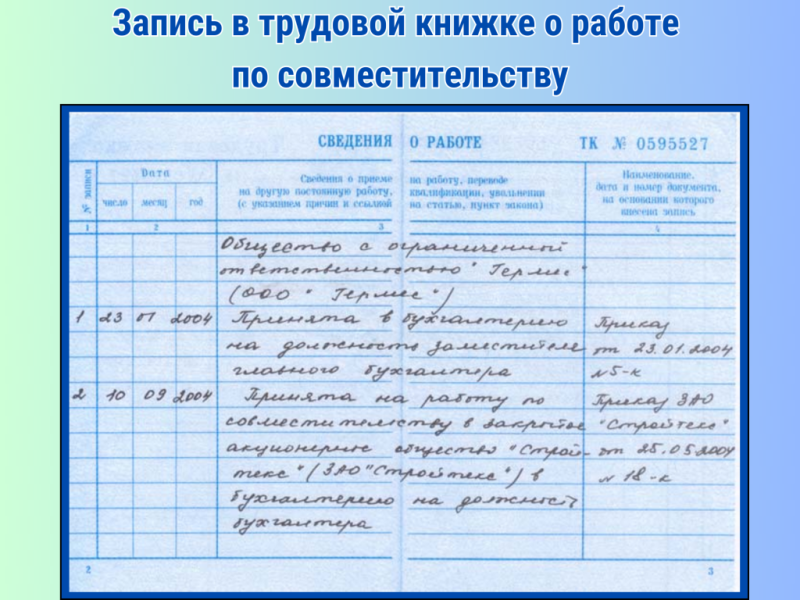 Запись в трудовой книжке о работе
по совместительству
СВЕДЕНИЯ О РАБОТЕ ТК № 0595527
№ записи
Дата
число месяц год
Сведения о приеме на работу, переводе
на другую постоянную работу, квалификации, увольнении
(с указанием причин и ссылкой на статью, пункт закона)
Наименование,
дата и номер документа,
на основании которого
внесена запись
1 2 3 4
Общество с ограниченной
ответственностью "Гермес"
(ООО "Гермес")
1 23 01 2004 Принята в бухгалтерию Приказ
на должность заместителя от 23.01.2004
главного бухгалтера №5-к
2 10 09 2004 Принята на работу по Приказ ЗАО
совместительству в закрытое "Стройтекс"
акционерное общество "Строй- от 25.05.2004
текс" (ЗАО "Стройтекс") в № 18-к
бухгалтерию на должность
бухгалтера
2 3